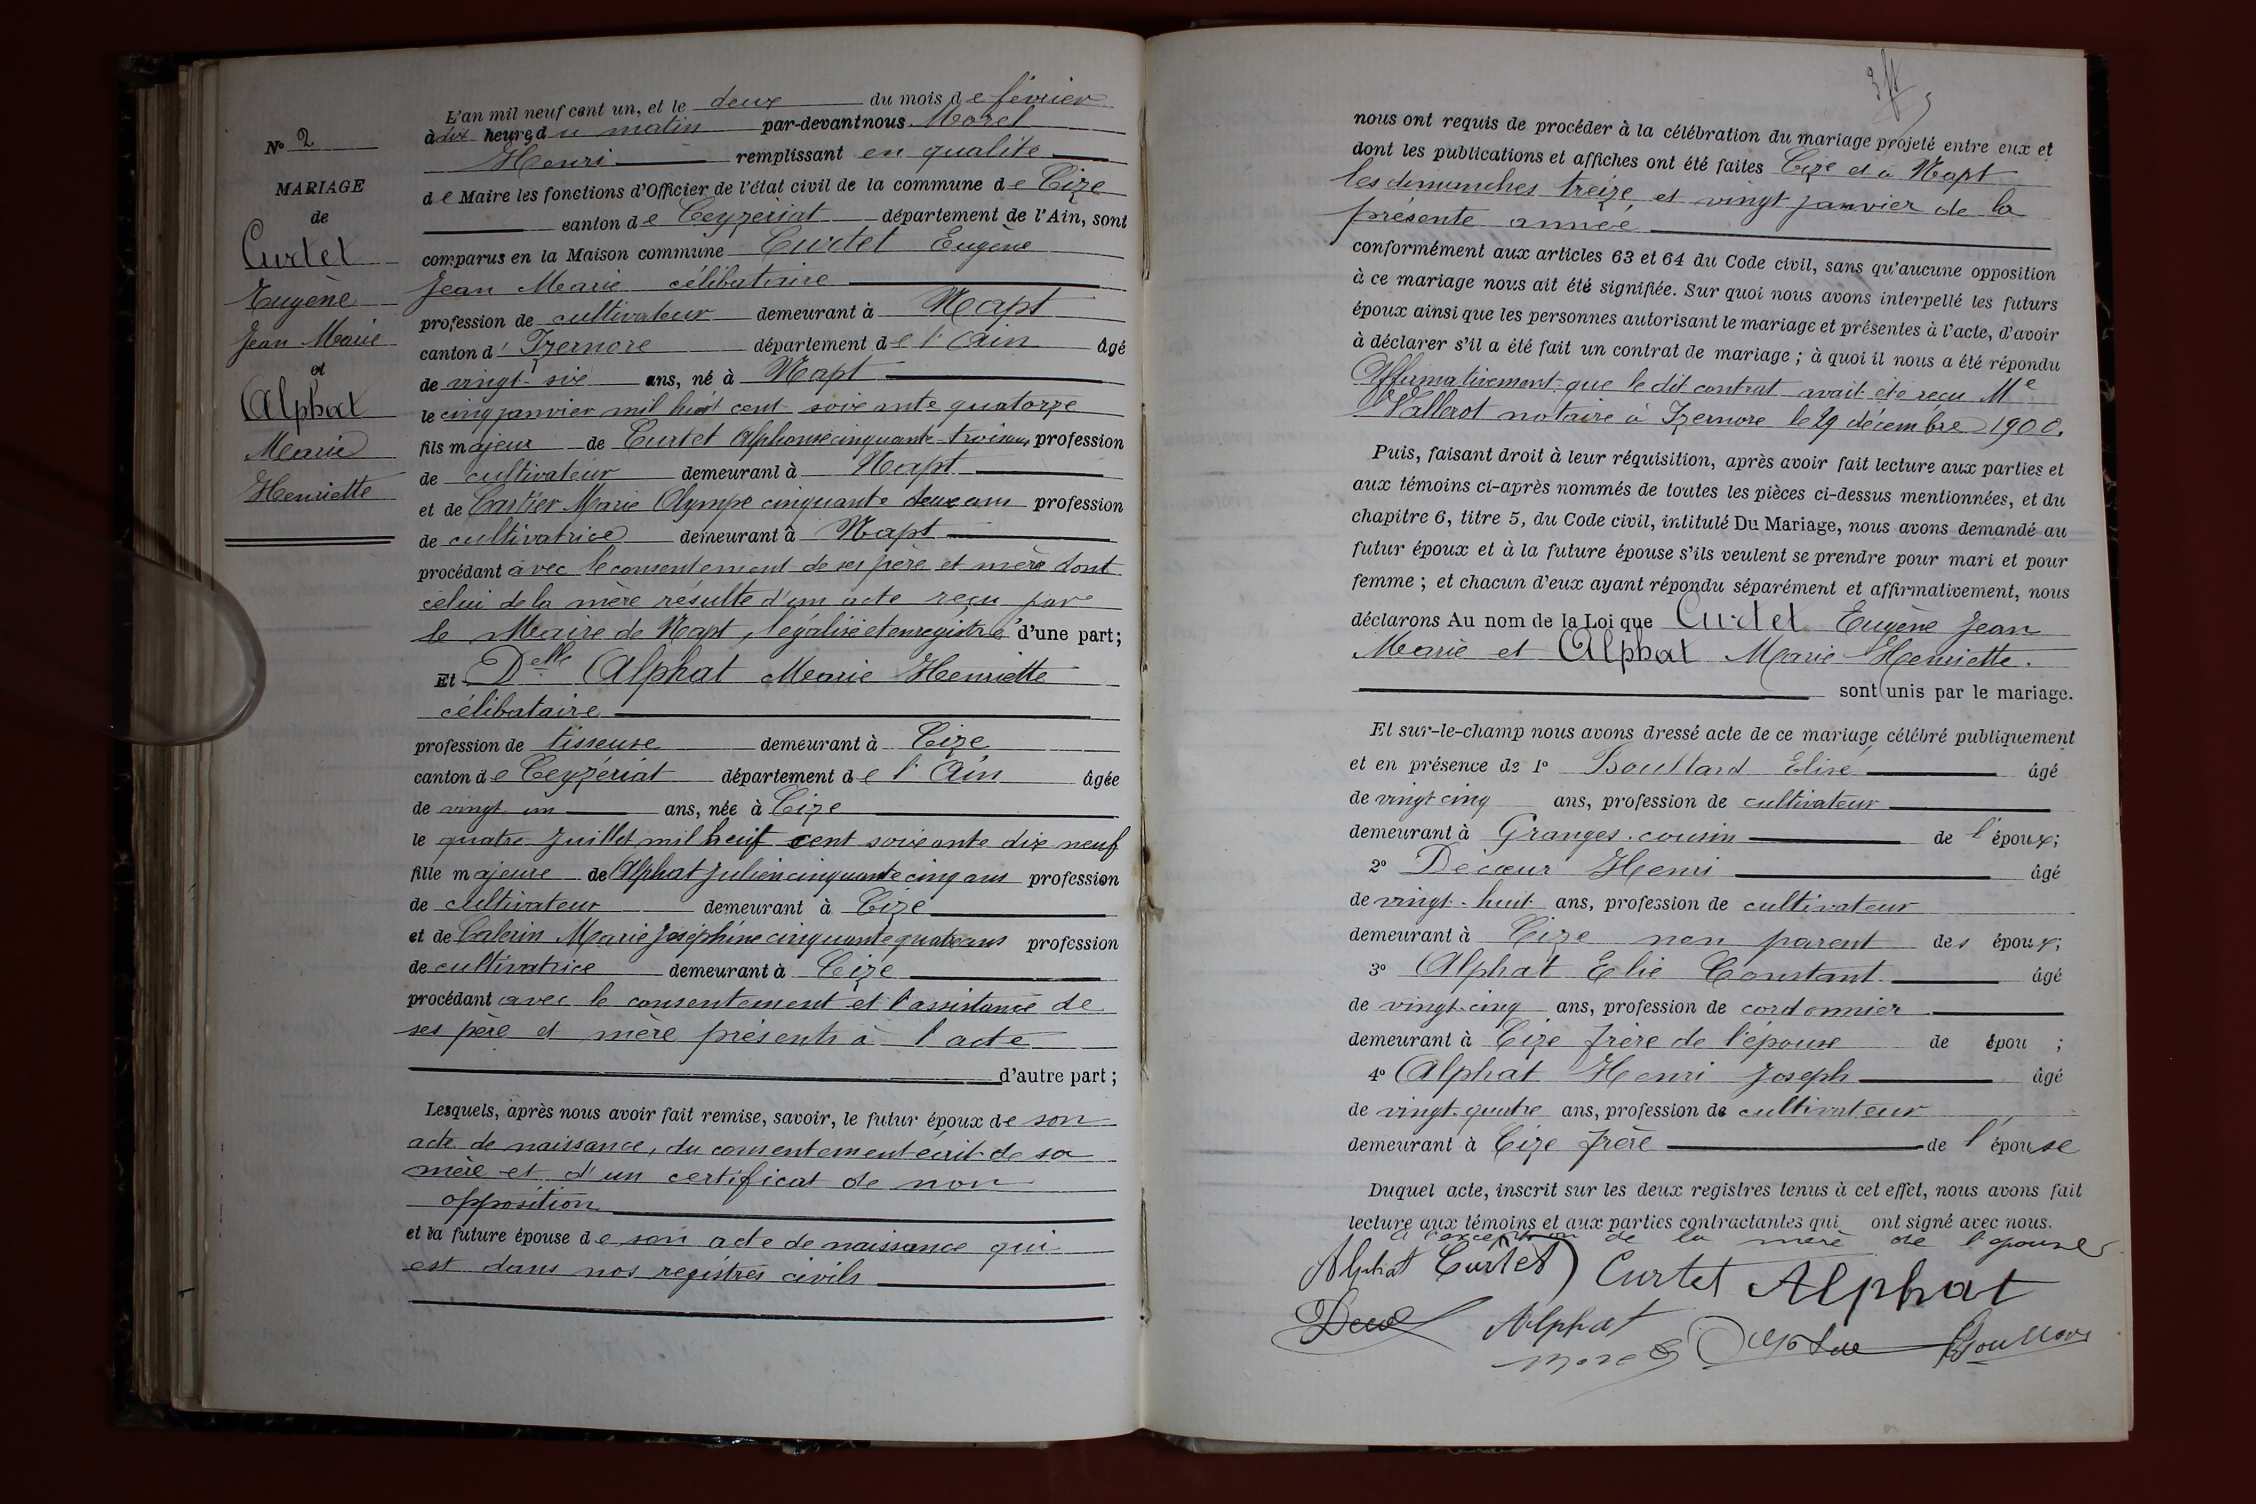 N° 2
MARIAGE
de
Curtet
Eugène
Jean Marie
et
Alphat
Marie
Henriette
L'an mil neuf cent un, et le deux du mois de février
à dix heures du matin par-devant nous Morel
Henri remplissant en qualité
de Maire les fonctions d'Officier de l'état civil de la commune de Cize
canton de Ceyzériat département de l'Ain, sont
comparus en la Maison commune Curtet Eugène
Jean Marie célibataire
profession de cultivateur demeurant à Napt
canton d'Izernore département de l'Ain âgé
de vingt-six ans, né à Napt
le cinq janvier mil huit cent soixante quatorze
fils majeur de Curtet Alphonse cinquante-trois ans profession
de cultivateur demeurant à Napt
et de Cartier Marie Olympe cinquante deux ans profession
de cultivatrice demeurant à Napt
procédant avec le consentement de ses père et mère dont
celui de la mère résulte d'un acte reçu par
le Maire de Napt, légalisé et enregistré d'une part;
Et Delle Alphat Marie Henriette
célibataire
profession de tisseuse demeurant à Cize
canton de Ceyzériat département de l'Ain âgée
de vingt un ans, née à Cize
le quatre Juillet mil huit cent soixante dix neuf
fille majeure de Alphat Julien cinquante cinq ans profession
de cultivateur demeurant à Cize
et de Marie Joséphine cinquante quatre ans profession
de cultivatrice demeurant à Cize
procédant avec le consentement et l'assistance de
ses père et mère présents à l'acte
d'autre part;
Lesquels, après nous avoir fait remise, savoir, le futur époux de son
acte de naissance, du consentement écrit de sa
mère et d'un certificat de non
opposition
et la future épouse de son acte de naissance qui
est dans nos registres civils
nous ont requis de procéder à la célébration du mariage projeté entre eux et
dont les publications et affiches ont été faites Cize et à Napt
les dimanches treize et vingt janvier de la
présente année
conformément aux articles 63 et 64 du Code civil, sans qu'aucune opposition
à ce mariage nous ait été signifiée. Sur quoi nous avons interpellé les futurs
époux ainsi que les personnes autorisant le mariage et présentes à l'acte, d'avoir
à déclarer s'il a été fait un contrat de mariage; à quoi il nous a été répondu
Affirmativement que le dit contrat avait été reçu Me
notaire à Izernore le 29 décembre 1900.
Puis, faisant droit à leur réquisition, après avoir fait lecture aux parties et
aux témoins ci-après nommés de toutes les pièces ci-dessus mentionnées, et du
chapitre 6, titre 5, du Code civil, intitulé Du Mariage, nous avons demandé au
futur époux et à la future épouse s'ils veulent se prendre pour mari et pour
femme; et chacun d'eux ayant répondu séparément et affirmativement, nous
déclarons Au nom de la Loi que Curtet Eugène Jean
Marie et Alphat Marie Henriette.
sont unis par le mariage.
Et sur-le-champ nous avons dressé acte de ce mariage célébré publiquement
et en présence de 1° Bouillard Elisé âgé
de vingt cinq ans, profession de cultivateur
demeurant à Granges. cousin de l'époux;
2° Decœur Henri âgé
de vingt-huit ans, profession de cultivateur
demeurant à Cize non parent des époux;
3° Alphat Elie Constant âgé
de vingt-cinq ans, profession de cordonnier
demeurant à Cize frère de l'épouse de épou ;
4° Alphat Henri Joseph âgé
de vingt-quatre ans, profession de cultivateur
demeurant à Cize frère de l'épouse
Duquel acte, inscrit sur les deux registres tenus à cet effet, nous avons fait
lecture aux témoins et aux parties contractantes qui ont signé avec nous.
à l'exception de la mère de l'épouse
Alphat Curtet Curtet Alphat
Alphat
Morel